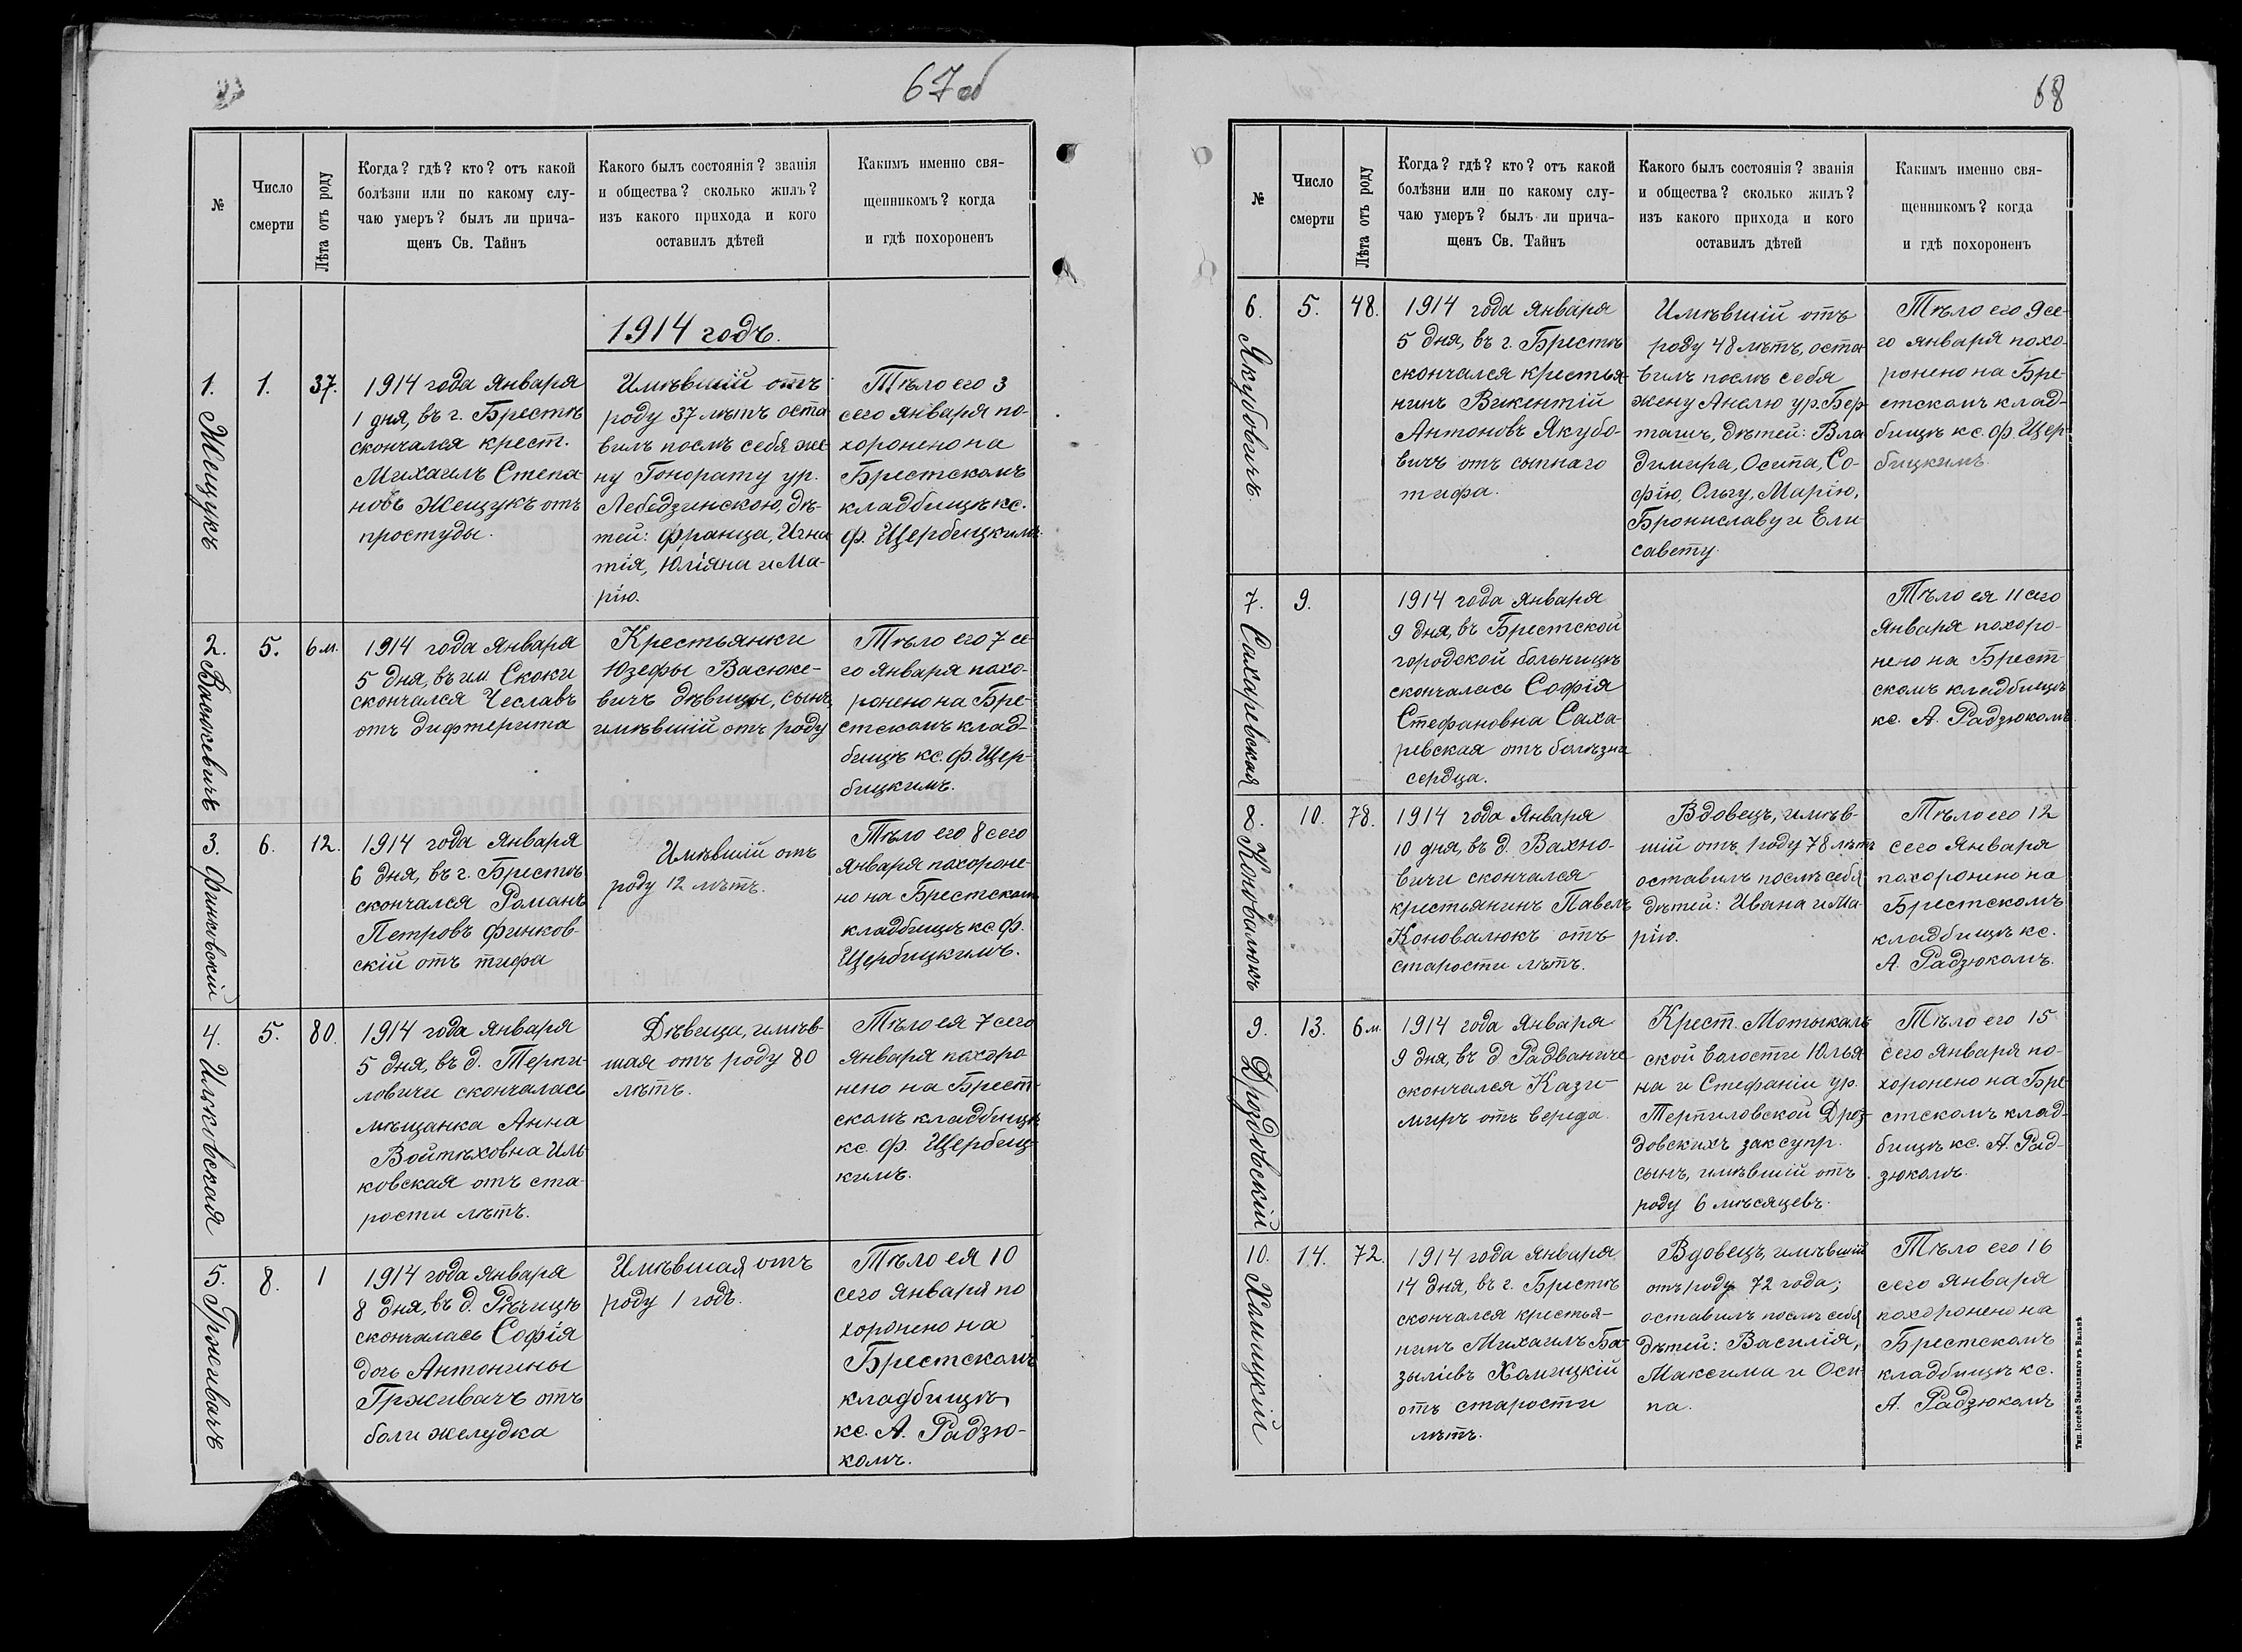 67об
№
Число
смерти
Лѣта отъ роду
Когда? гдѣ? кто? отъ какой
болѣзни или по какому слу-
чаю умеръ? былъ ли прича-
щенъ Св. Тайнъ
Какого былъ состоянія? званія
и общества? сколько жилъ?
изъ какого прихода и кого
оставилъ дѣтей
Какимъ именно свя-
щенникомъ? когда
и гдѣ похороненъ
1914 годъ.
1. Жещукъ
1.
37.
1914 года Января
1 дня, въ г. Брестѣ
скончался крест.
Михаилъ Степа-
новъ Жещукъ отъ
простуды.
Имѣвшій отъ
роду 37 лѣтъ оста
вилъ послѣ себя же
ну Гонорату ур.
Лебедзинскою, дѣ-
тей: Франца, Игна
тія, Юліана и Ма-
рію.
Тѣло его 3
сего Января по-
хоронено на
Брестскомъ
кладбищѣ кс.
Ф. Щербицкимъ.
2. Васюкевичъ
5.
6 м.
1914 года Января
5 дня, въ им Скоки
скончался Чеславъ
отъ дифтерита
Крестьянки
Юзефы Васюке-
вичъ дѣвицы, сынъ,
имѣвшій отъ роду
Тѣло его 7 се-
го Января похо-
ронено на Бре-
стскомъ клад-
бищѣ кс. Ф. Щер-
бицкимъ.
3. Финковскій
6.
12.
1914 года Января
6 дня, въ г. Брестѣ
скончался Романъ
Петровъ Финков-
скій отъ тифа
Имѣвшій отъ
роду 12 лѣтъ.
Тѣло его 8 сего
Января похороне-
но на Брестскомъ
кладбищѣ кс Ф.
Щербицкимъ.
4. Ильковская
5.
80.
1914 года Января
5 дня, въ д. Терпи-
ловичи скончалась
мѣщанка Анна
Войтѣховна Иль
ковская отъ ста-
рости лѣтъ.
Дѣвица, имѣв-
шая отъ роду 80
лѣтъ.
Тѣло ея 7 сего
Января похоро
нено на Брест-
скомъ кладбищѣ
кс. Ф. Щербиц-
кимъ.
5. Грживачъ
8.
1
1914 года Января
8 дня, въ д. Рѣчицѣ
скончалась Софія
дочь Антонины
Грживачъ отъ
боли желудка
Имѣвшая отъ
роду 1 годъ.
Тѣло ея 10
сего Января по
хоронено на
Брестскомъ
кладбищѣ
кс. А. Радзю-
комъ.
68
№
Число
смерти
Лѣта отъ роду
Когда? гдѣ? кто? отъ какой
болѣзни или по какому слу-
чаю умеръ? былъ ли прича-
щенъ Св. Тайнъ
Какого былъ состоянія? званія
и общества? сколько жилъ?
изъ какого прихода и кого
оставилъ дѣтей
Какимъ именно свя-
щенникомъ? когда
и гдѣ похороненъ
6. Якубовичъ
5.
48.
1914 года Января
5 дня, въ г. Брестѣ
скончался крестья-
нинъ Викентій
Антоновъ Якубо-
вичъ отъ сыпнаго
тифа.
Имѣвшій отъ
роду 48 лѣтъ, оста
вилъ послѣ себя
жену Анелю ур. Бер-
ташъ, дѣтей: Вла
димира, Осипа, Со-
фію, Ольгу, Марію,
Брониславу и Ели
савету.
Тѣло его 9 се-
го Января похо-
ронено на Бре-
стскомъ клад-
бищѣ кс. Ф. Щер-
бицкимъ.
7. Сахаревская
9.
1914 года Января
9 дня, въ Брестской
городской больницѣ
скончалась Софія
Стефановна Саха-
ревская отъ болѣзни
сердца.
Тѣло ея 11 сего
Января похоро-
нено на Брест
скомъ кладбищѣ
кс. А. Радзюкомъ
8. Коновалюкъ
10.
78.
1914 года Января
10 дня, въ д. Вахно-
вичи скончался
крестьянинъ Павелъ
Коновалюкъ отъ
старости лѣтъ.
Вдовецъ, имѣв-
шій отъ роду 78 лѣтъ
оставилъ послѣ себя
дѣтей: Ивана и Ма-
рію.
Тѣло его 12
сего Января
похоронено на
Брестскомъ
кладбищѣ кс.
А. Радзюкомъ.
9. Дроздовскій
13.
6 м.
1914 года Января
9 дня, въ д Радваничи
скончался Кази-
миръ отъ вереда.
Крест. Мотыкаль
ской волости Юлья
на и Стефаніи ур.
Терпиловской Дроз-
довскихъ зак супр.
сынъ, имѣвшій отъ
роду 6 мѣсяцевъ.
Тѣло его 15
сего Января по-
хоронено на Бре-
стскомъ клад-
бищѣ кс. А. Рад-
зюкомъ.
10. Хомицкій
14.
72.
1914 года Января
14 дня, въ г. Брестѣ
скончался крестья-
нинъ Михаилъ Ба-
зылівъ Хомицкій
отъ старости
лѣтъ.
Вдовецъ, имѣвшій
отъ роду 72 года,
оставилъ послѣ себя
дѣтей: Василія,
Максима и Оси-
па.
Тѣло его 16
сего Января
похоронено на
Брестскомъ
кладбищѣ кс.
А. Радзюкомъ
Тип. Іосифа Завадзкаго въ Вильнѣ.